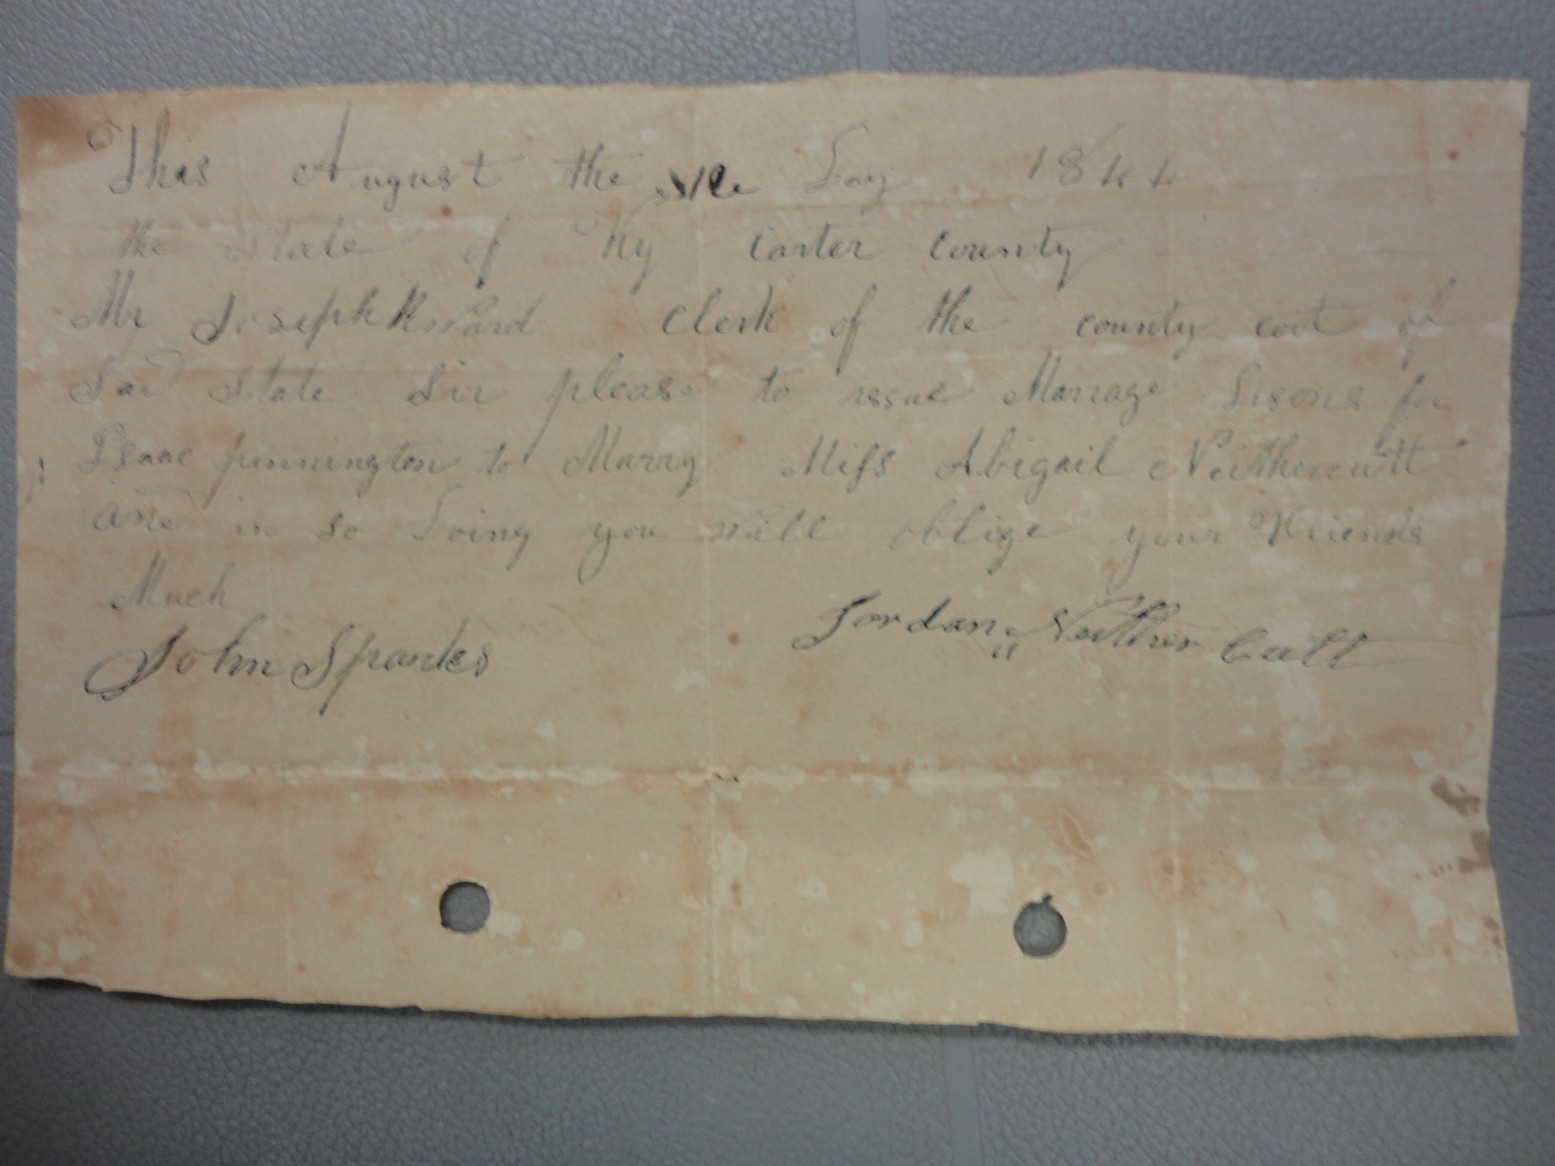 This August the Day 1844
the State of Ky Carter County
Mr Joseph Ward Clerk of the county cort of
Sad State Sir please to issue Marrage Lisons for
Isaac pennington to Marry Miss Abigail Neithercutt
and in so Doing you will oblige your Friends
Much
John Sparks Jordan Neithercutt